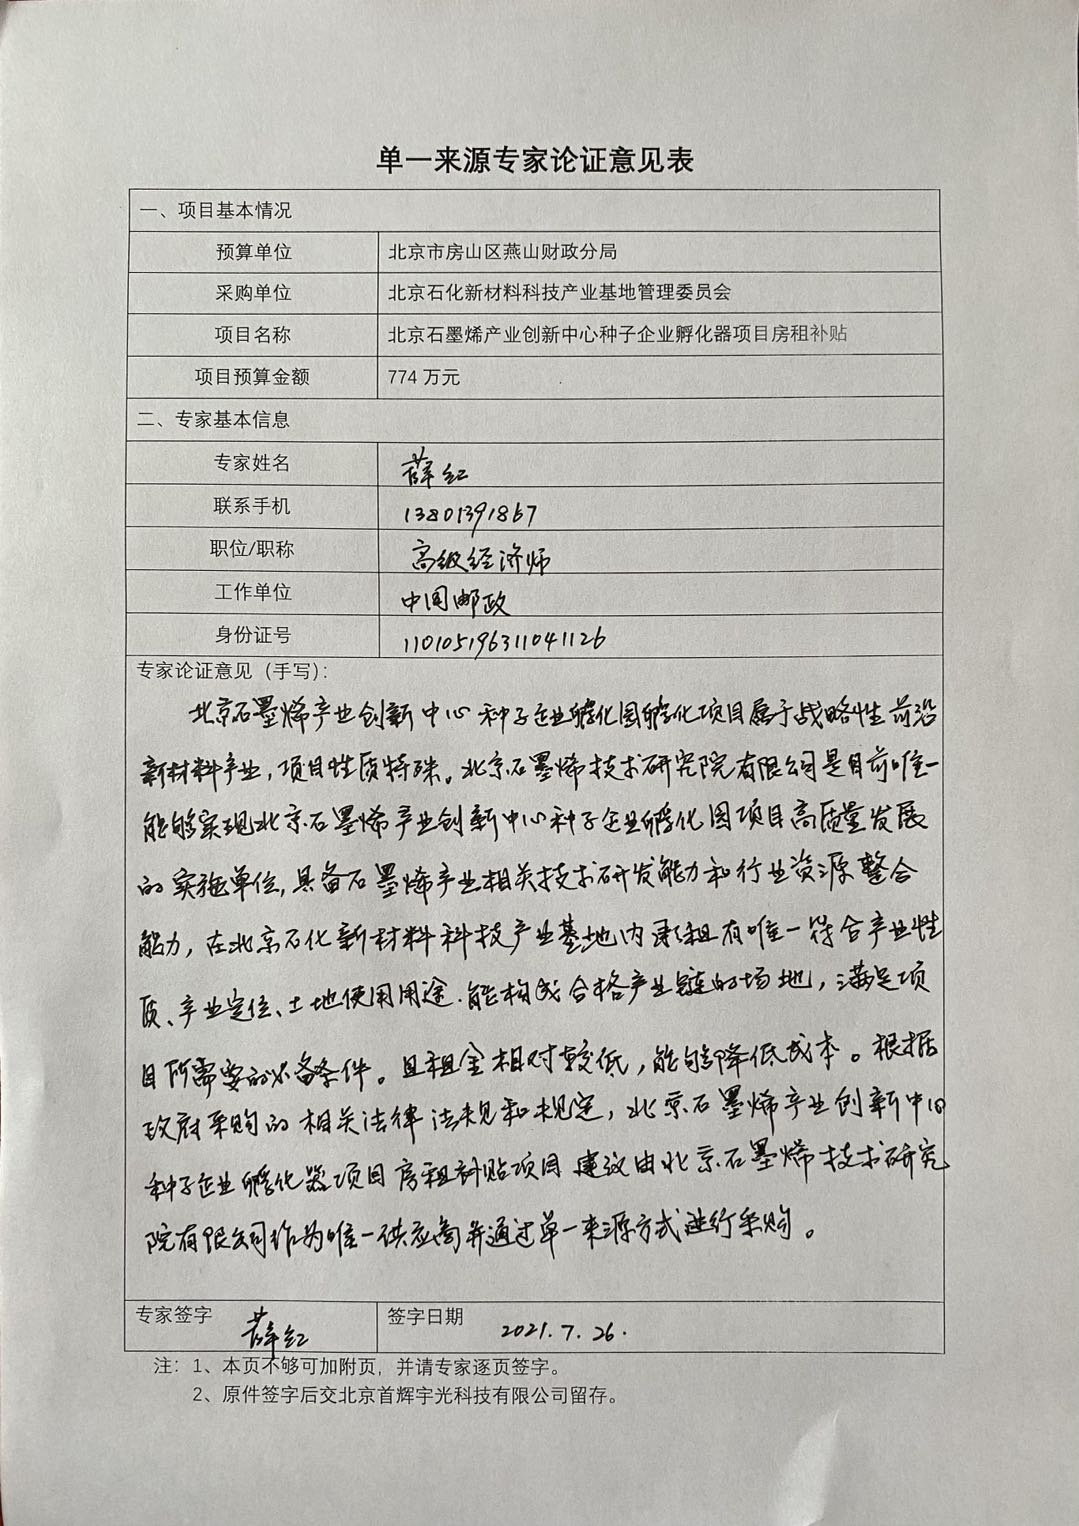 单一来源专家论证意见表
一、项目基本情况
预算单位 北京市房山区燕山财政分局
采购单位 北京石化新材料科技产业基地管理委员会
项目名称 北京石墨烯产业创新中心种子企业孵化器项目房租补贴
项目预算金额 774 万元
二、专家基本信息
专家姓名 薛红
联系手机 13801391867
职位/职称 高级经济师
工作单位 中国邮政
身份证号 110105196311041126
专家论证意见（手写）：
北京石墨烯产业创新中心种子企业孵化园孵化项目属于战略性前沿
新材料产业，项目性质特殊。北京石墨烯技术研究院有限公司是目前唯一
能够实现北京石墨烯产业创新中心种子企业孵化园项目高质量发展
的实施单位，具备石墨烯产业相关技术研发能力和行业资源整合
能力，在北京石化新材料科技产业基地内承租有唯一符合产业性
质、产业定位、土地使用用途、能构成合格产业链的场地，满足项
目所需要的必备条件。且租金相对较低，能够降低成本。根据
政府采购的相关法律法规和规定，北京石墨烯产业创新中心
种子企业孵化器项目房租补贴项目建议由北京石墨烯技术研究
院有限公司作为唯一供应商并通过单一来源方式进行采购。
专家签字 薛红 签字日期 2021.7.26.
注：1、本页不够可加附页，并请专家逐页签字。
2、原件签字后交北京首辉宇光科技有限公司留存。